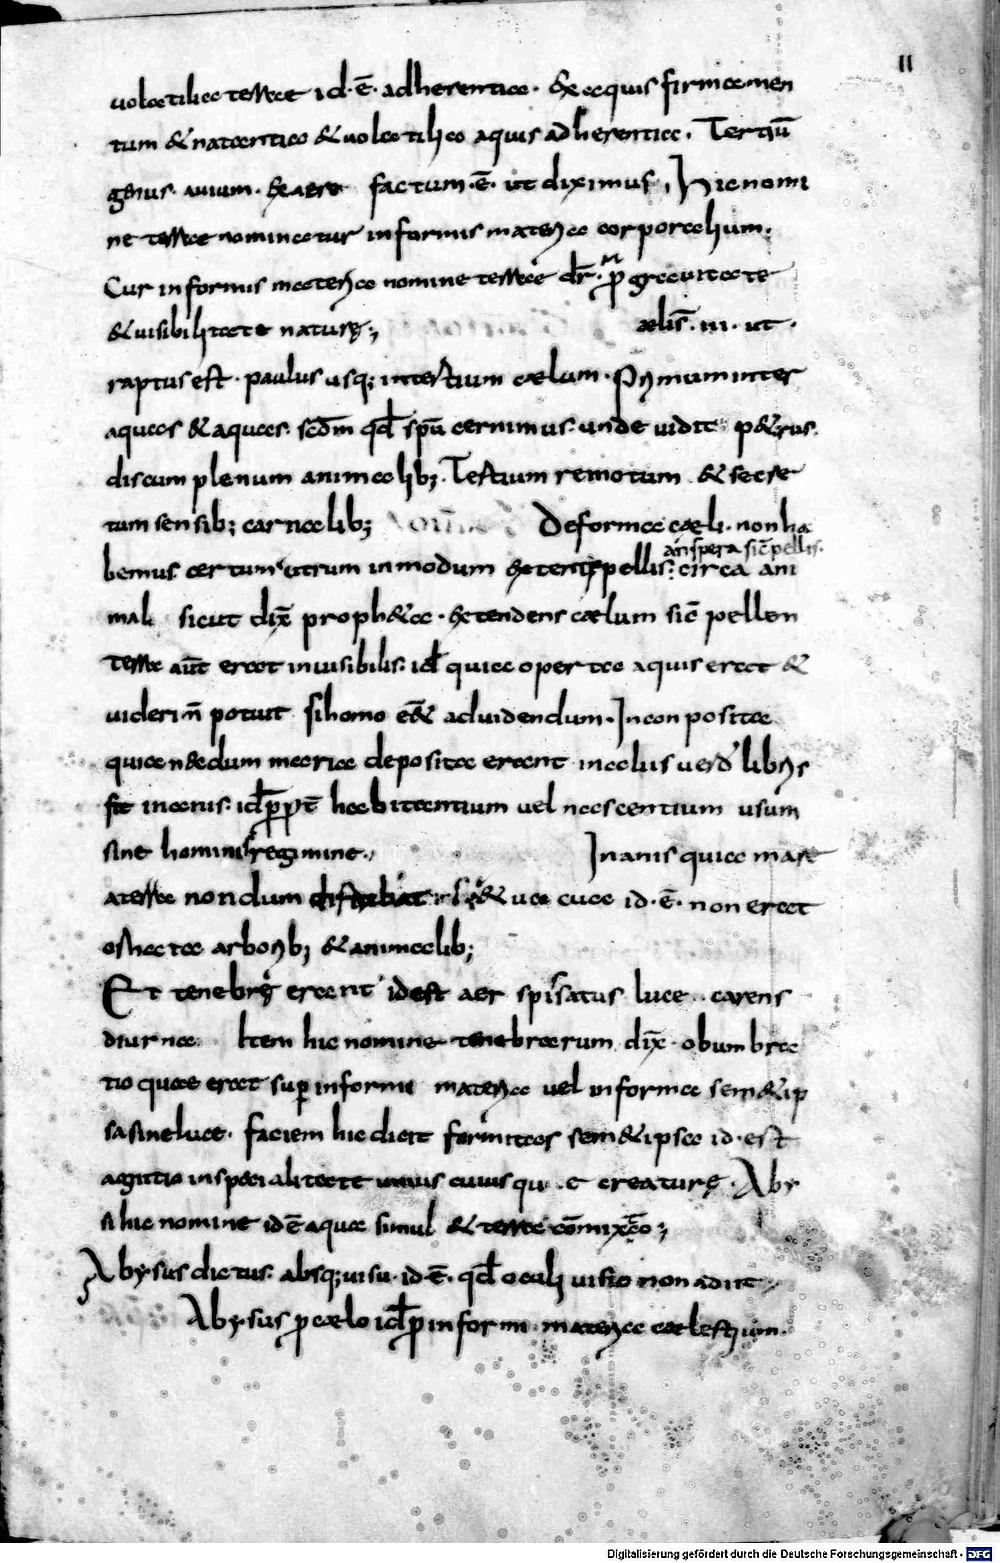 11
uolatilia terrae id · ē · adherentia · Ex aquis firmamen
tum & natantia & uolatilia aquis adherentia · Tertiū
genus auium · Ex aere factum · ē · ut diximus · Hic nomi
ne terrae nominatur informis materia corporalium ·
Cur informis materia nomine terrae dr̄ · p̄ grauitate
& uisibilitate naturę ; aelis̄ · iii · ut ·
raptus est · paulus usq; in tertium caelum · Primum inter
aquas & aquas · scd̄m qd̄ spū cernimus · unde uidit p&rus ·
discum plenum animalib; · Tertium remotum & secre
tum sensib; carnalib; De forma caeli · non ha
an spera sic̄ pellis ·
bemus certum utrum in modum extensę pellis · circa ani
mal sicut dix̄ proph&a · Extendens caelum sic̄ pellem
Terra aūt erat inuisibilis · id̄ quia operta aquis erat &
uideri n̄ potuit si homo e&̄ aduidendum · Inconposita
quia necdum maria deposita erant in aluis uerd libris
fit inanis · id̄ p̄p̄t̄ habitantium uel nascentium usum
sine hominis regimine · Inanis quia mare
a terra nondum & uacua id · ē · non erat
ornata arborib; & animalib;
Et tenebrę erant id est aer spissatus luce carens
diurna Item hic nomine tenebrarum dix̄ · obumbra
tio quae erat sup̄ informi materia uel informa sem&ip
sa sine luce · faciem hic dicit formitas sem&ipsa id · est
agnitio in specialitate unius cuius qu e creaturę · Aby
si hic nomine id ē aquae simul & terrae cōmixtio ;
Abysus dictus · absq; uisu · id · ē · qd̄ oculi uisio non adiit ;
Abysus p caelo id̄ p̄ informi materia caelestium ·
Digitalisierung gefördert durch die Deutsche Forschungsgemeinschaft - DFG